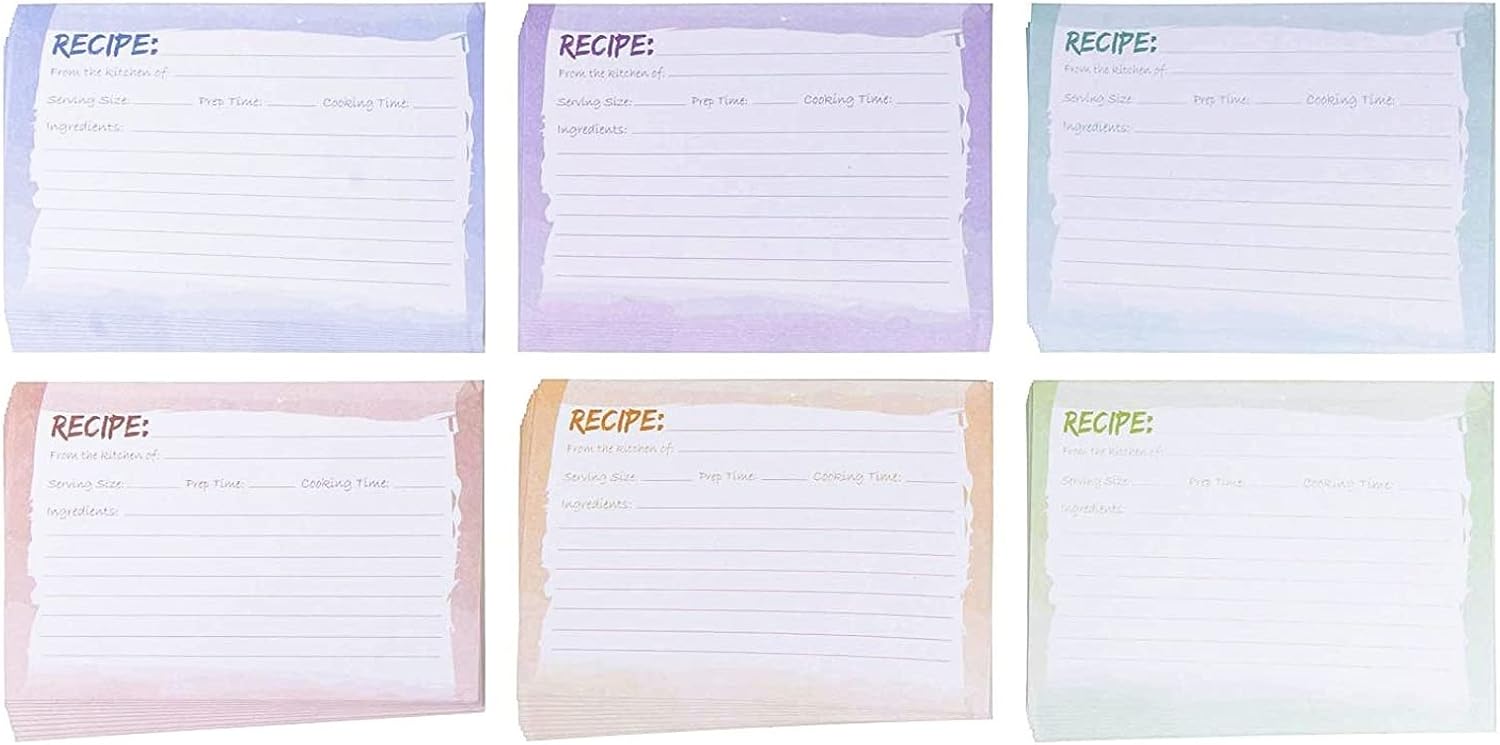 RECIPE:
From the kitchen of:
Serving Size: Prep Time: Cooking Time:
Ingredients:
RECIPE:
From the kitchen of:
Serving Size: Prep Time: Cooking Time:
Ingredients:
RECIPE:
From the kitchen of:
Serving Size: Prep Time: Cooking Time:
Ingredients:
RECIPE:
From the kitchen of:
Serving Size: Prep Time: Cooking Time:
Ingredients:
RECIPE:
From the kitchen of:
Serving Size: Prep Time: Cooking Time:
Ingredients:
RECIPE:
From the kitchen of:
Serving Size: Prep Time: Cooking Time:
Ingredients: